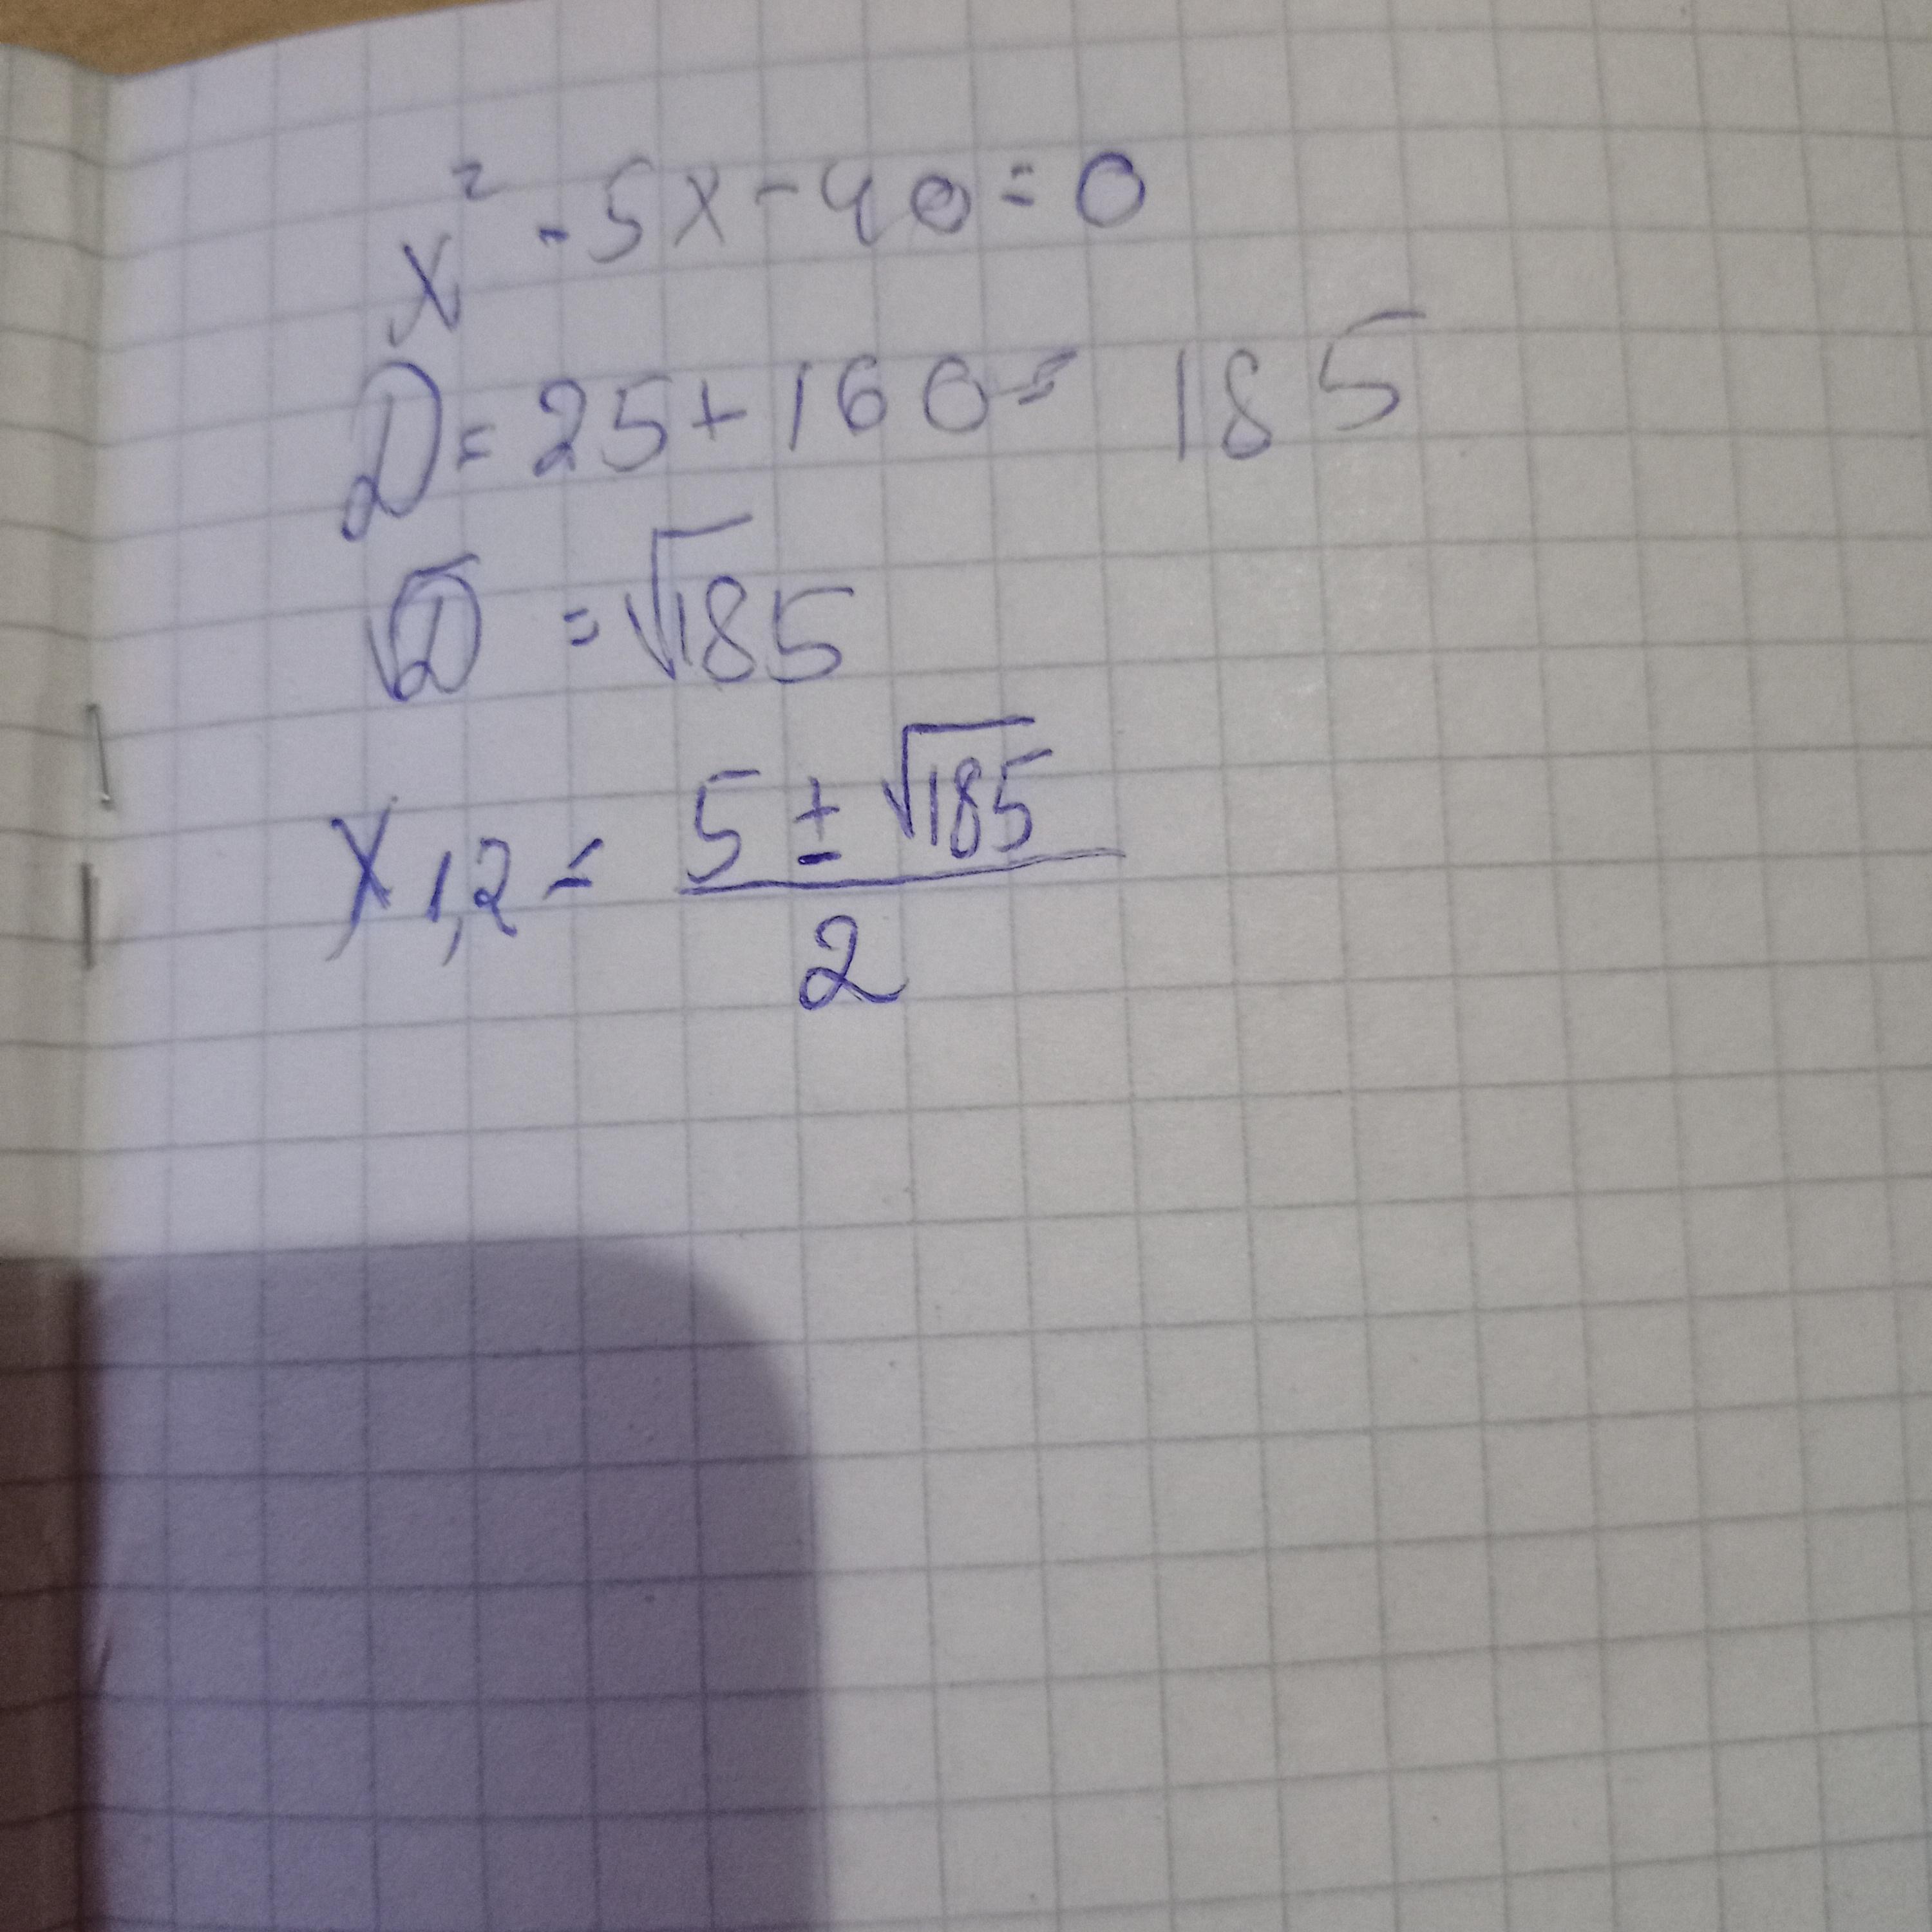 x² - 5x - 40 = 0
D = 25 + 160 = 185
√D = √185
x 1,2 = (5 ± √185) / 2